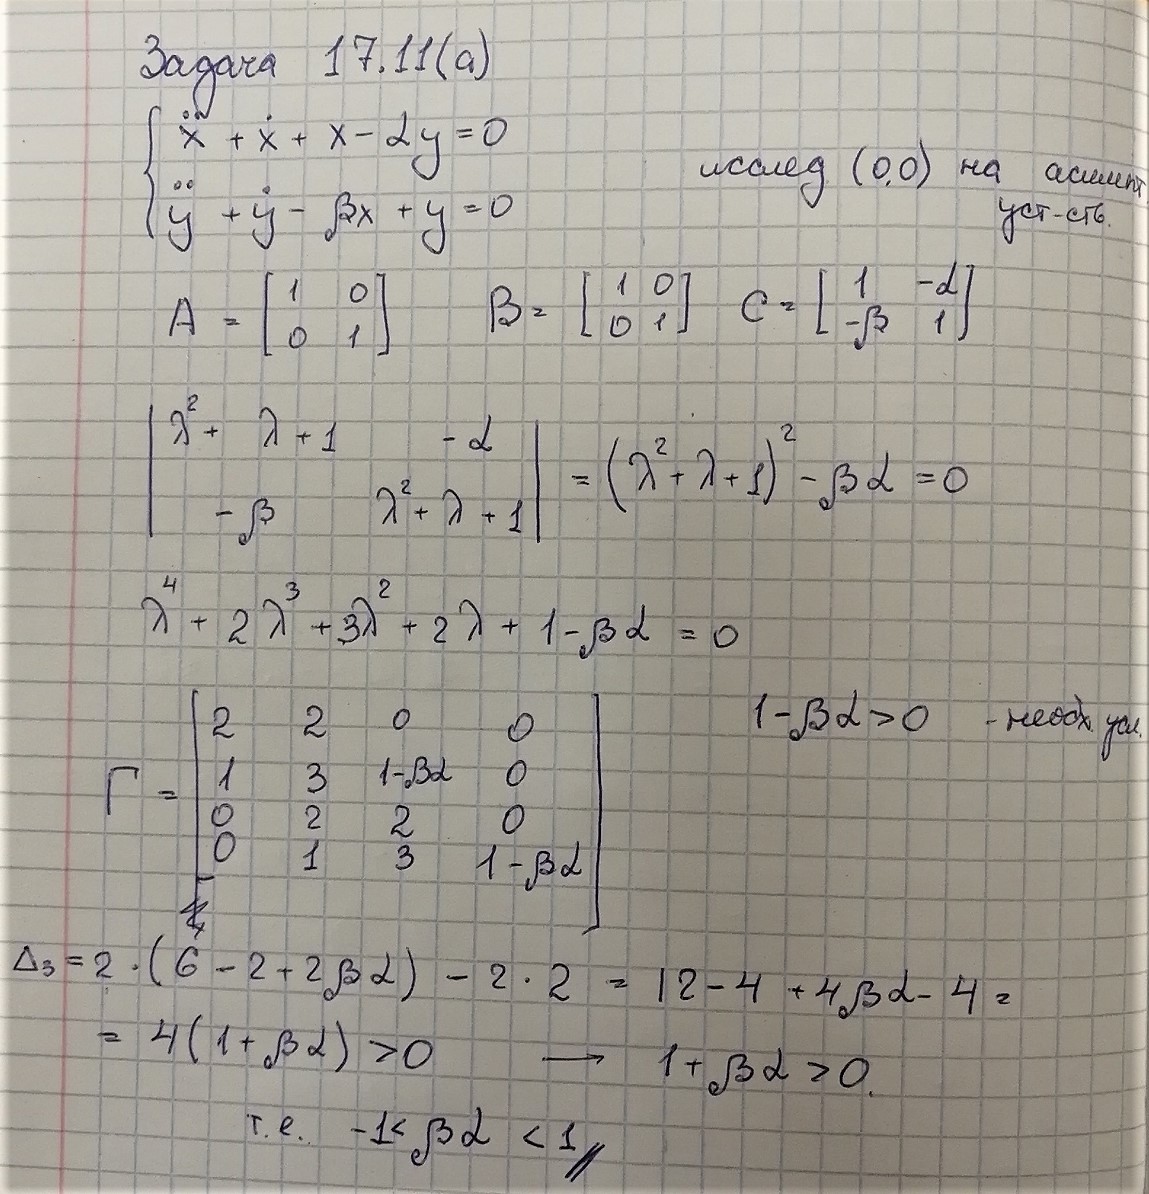 Задача 17.11(а)
ẍ + ẋ + x - αy = 0
ÿ + ẏ - βx + y = 0
исслед (0,0) на асимпт
уст-сть.
A = [1 0; 0 1] B = [1 0; 0 1] C = [1 -α; -β 1]
|λ² + λ + 1 -α; -β λ² + λ + 1| = (λ² + λ + 1)² - βα = 0
λ⁴ + 2λ³ + 3λ² + 2λ + 1 - βα = 0
Γ = [2 2 0 0; 1 3 1-βα 0; 0 2 2 0; 0 1 3 1-βα]
1 - βα > 0 - необх. усл.
Δ₃ = 2 · (6 - 2 + 2βα) - 2 · 2 = 12 - 4 + 4βα - 4 =
= 4(1 + βα) > 0 → 1 + βα > 0.
т.е. -1 < βα < 1